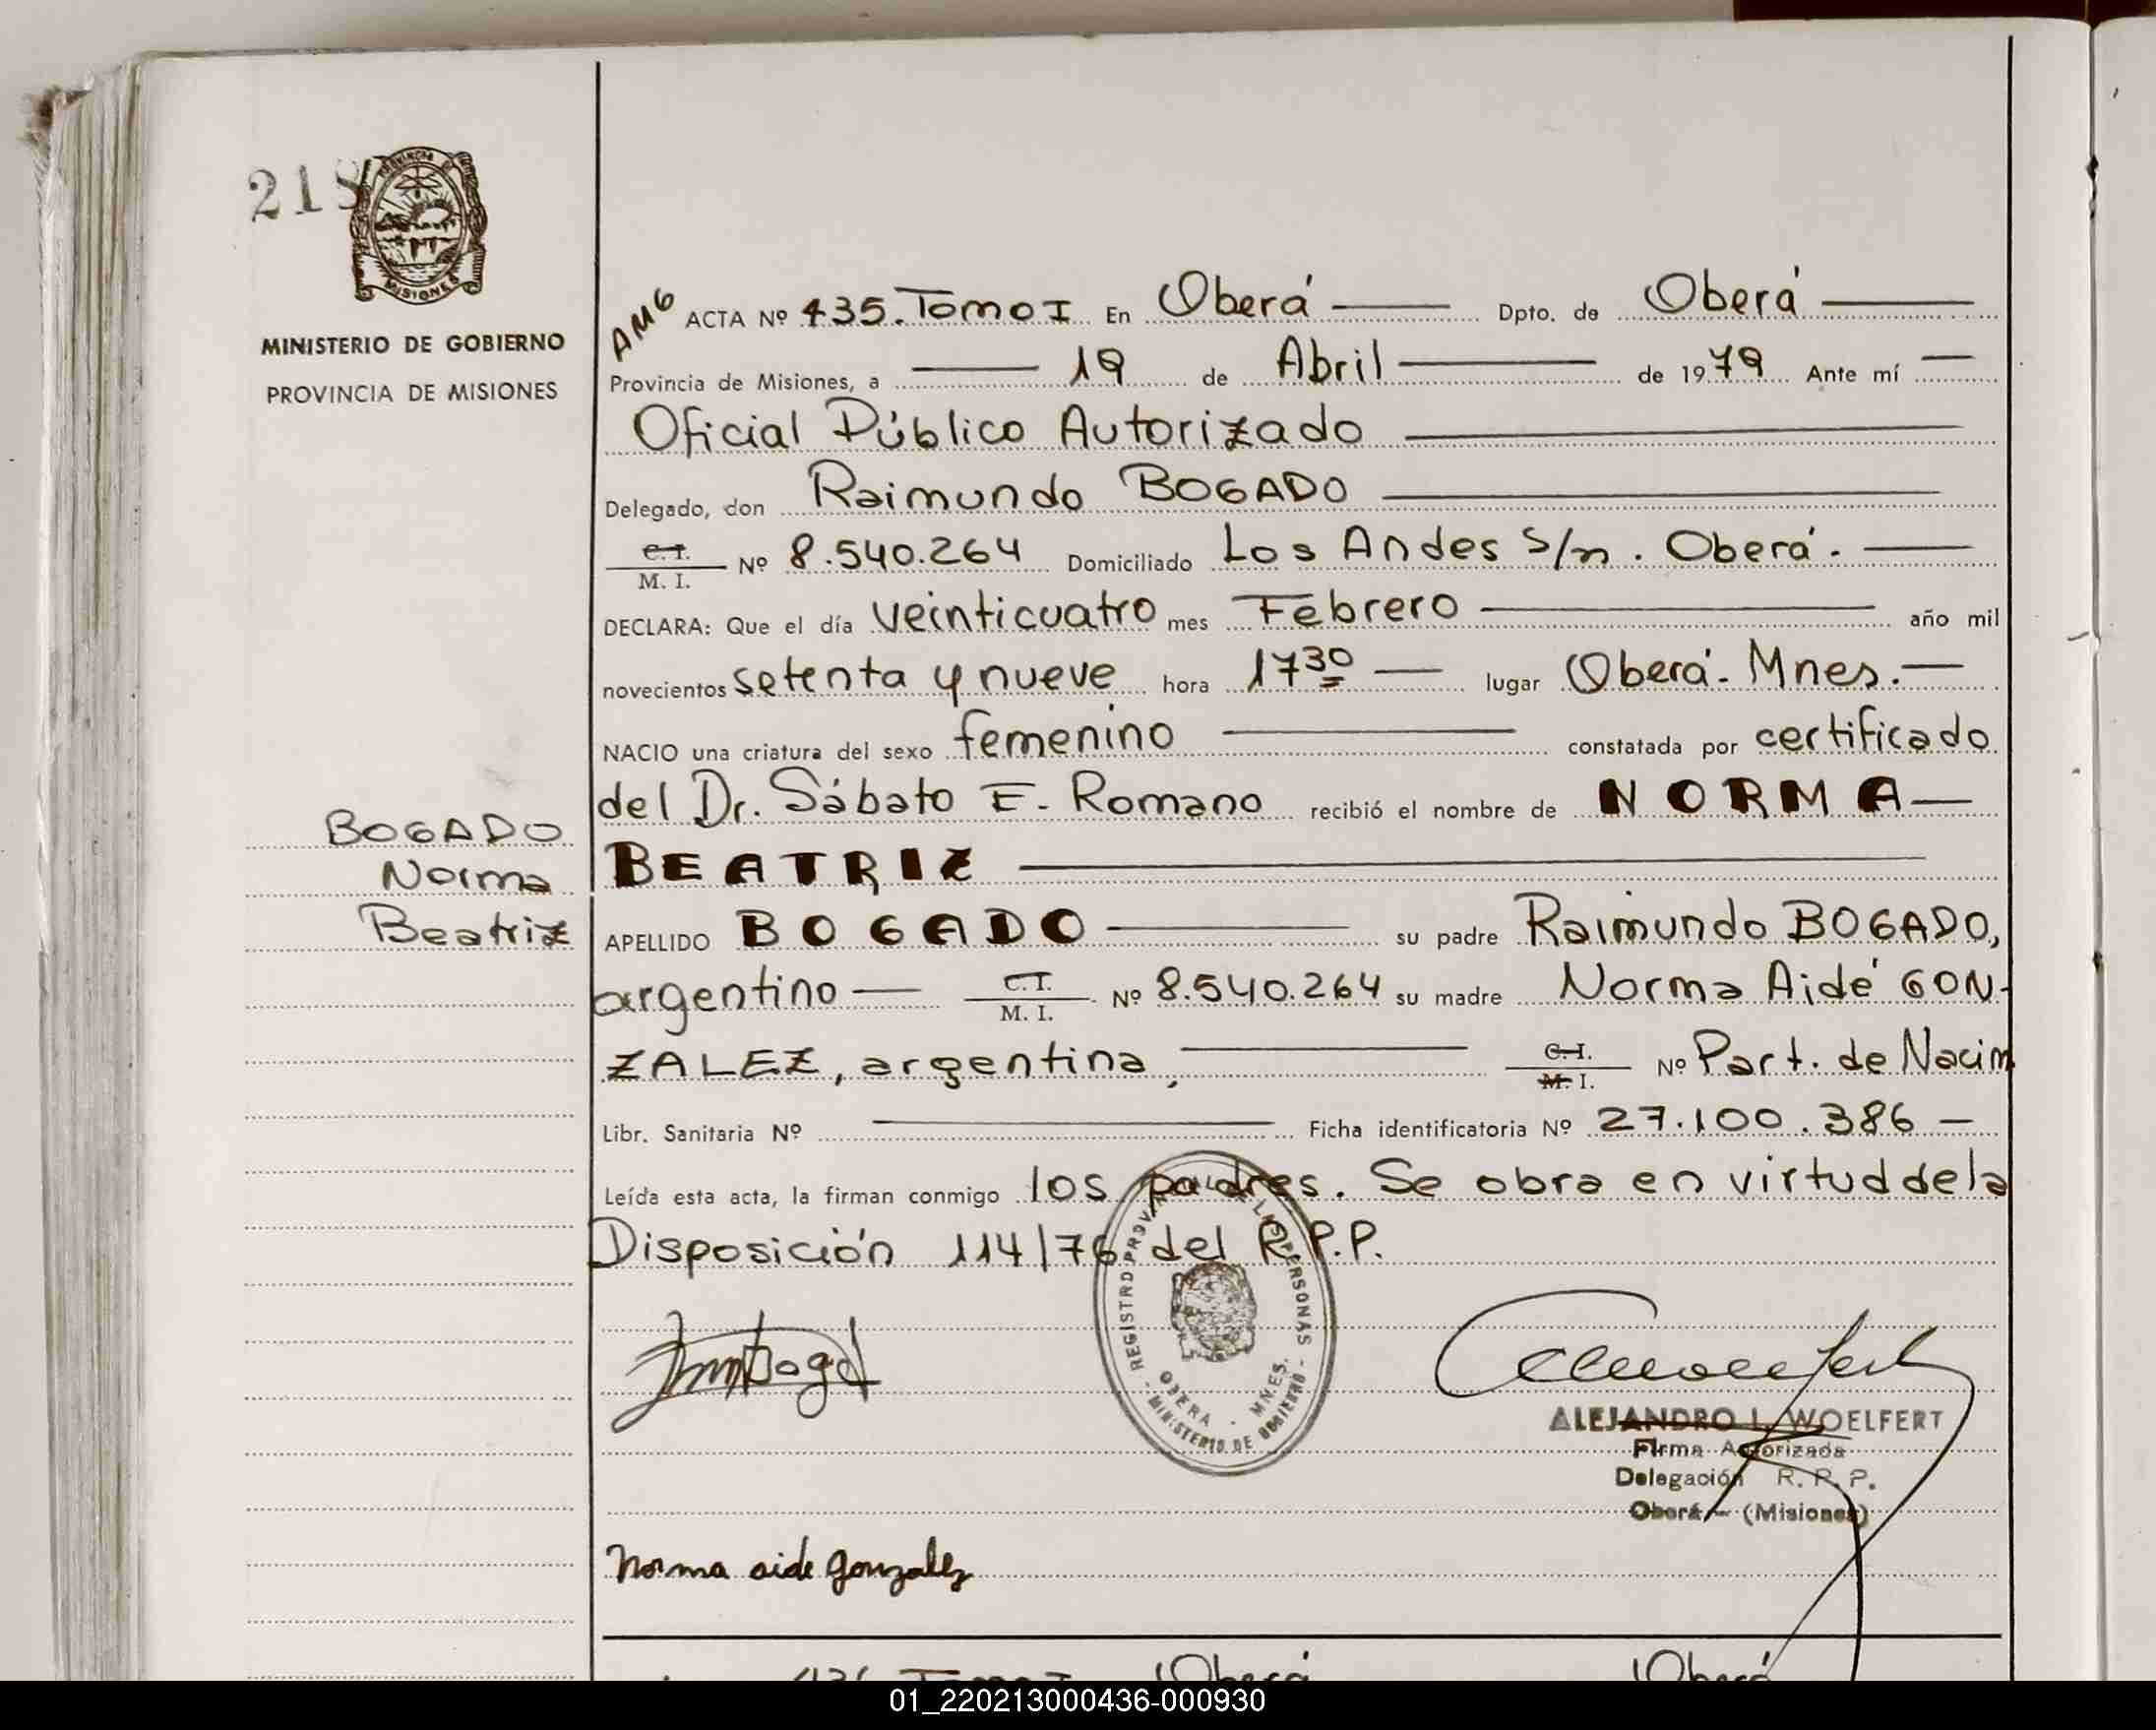 218
PROVINCIA DE
MISIONES
MINISTERIO DE GOBIERNO
PROVINCIA DE MISIONES
BOGADO
Norma
Beatriz
AMG ACTA Nº 435. Tomo I En Oberá Dpto. de Oberá
Provincia de Misiones, a 19 de Abril de 1979 Ante mí
Oficial Público Autorizado
Delegado, don Raimundo BOGADO
C.I. M. I. Nº 8.540.264 Domiciliado Los Andes S/n. Oberá.
DECLARA: Que el día veinticuatro mes Febrero año mil
novecientos setenta y nueve hora 17³⁰ lugar Oberá. Mnes.
NACIO una criatura del sexo femenino constatada por certificado
del Dr. Sábato E. Romano recibió el nombre de NORMA
BEATRIZ
APELLIDO BOGADO su padre Raimundo BOGADO,
argentino C.I. M. I. Nº 8.540.264 su madre Norma Aidé GON-
ZALEZ, argentina, C.I. M. I. Nº Part. de Nacim
Libr. Sanitaria Nº Ficha identificatoria Nº 27.100.386
Leída esta acta, la firman conmigo los padres. Se obra en virtud de la
Disposición 114/76 del R.P.P.
REGISTRO PROV. DE LAS PERSONAS
OBERA - MNES.
- MINISTERIO DE GOBIERNO -
ALEJANDRO L. WOELFERT
Firma Autorizada
Delegación R. P. P.
Oberá - (Misiones)
Norma aide gonzalez
436 Tomo I Oberá Oberá
01_220213000436-000930